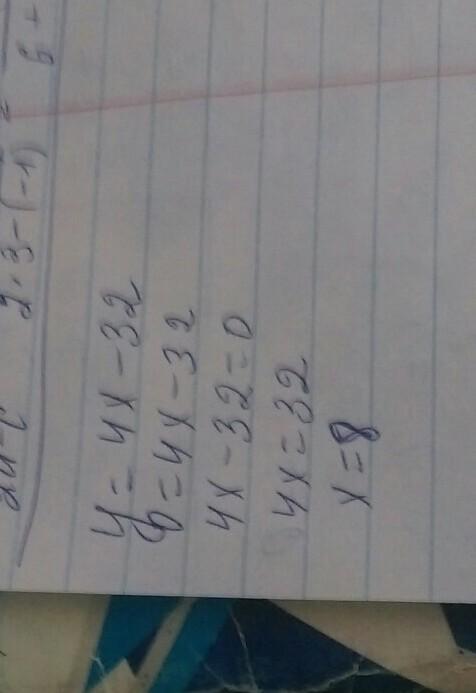 2·3-(-1) =
y = 4x - 32
0 = 4x - 32
4x - 32 = 0
4x = 32
x = 8